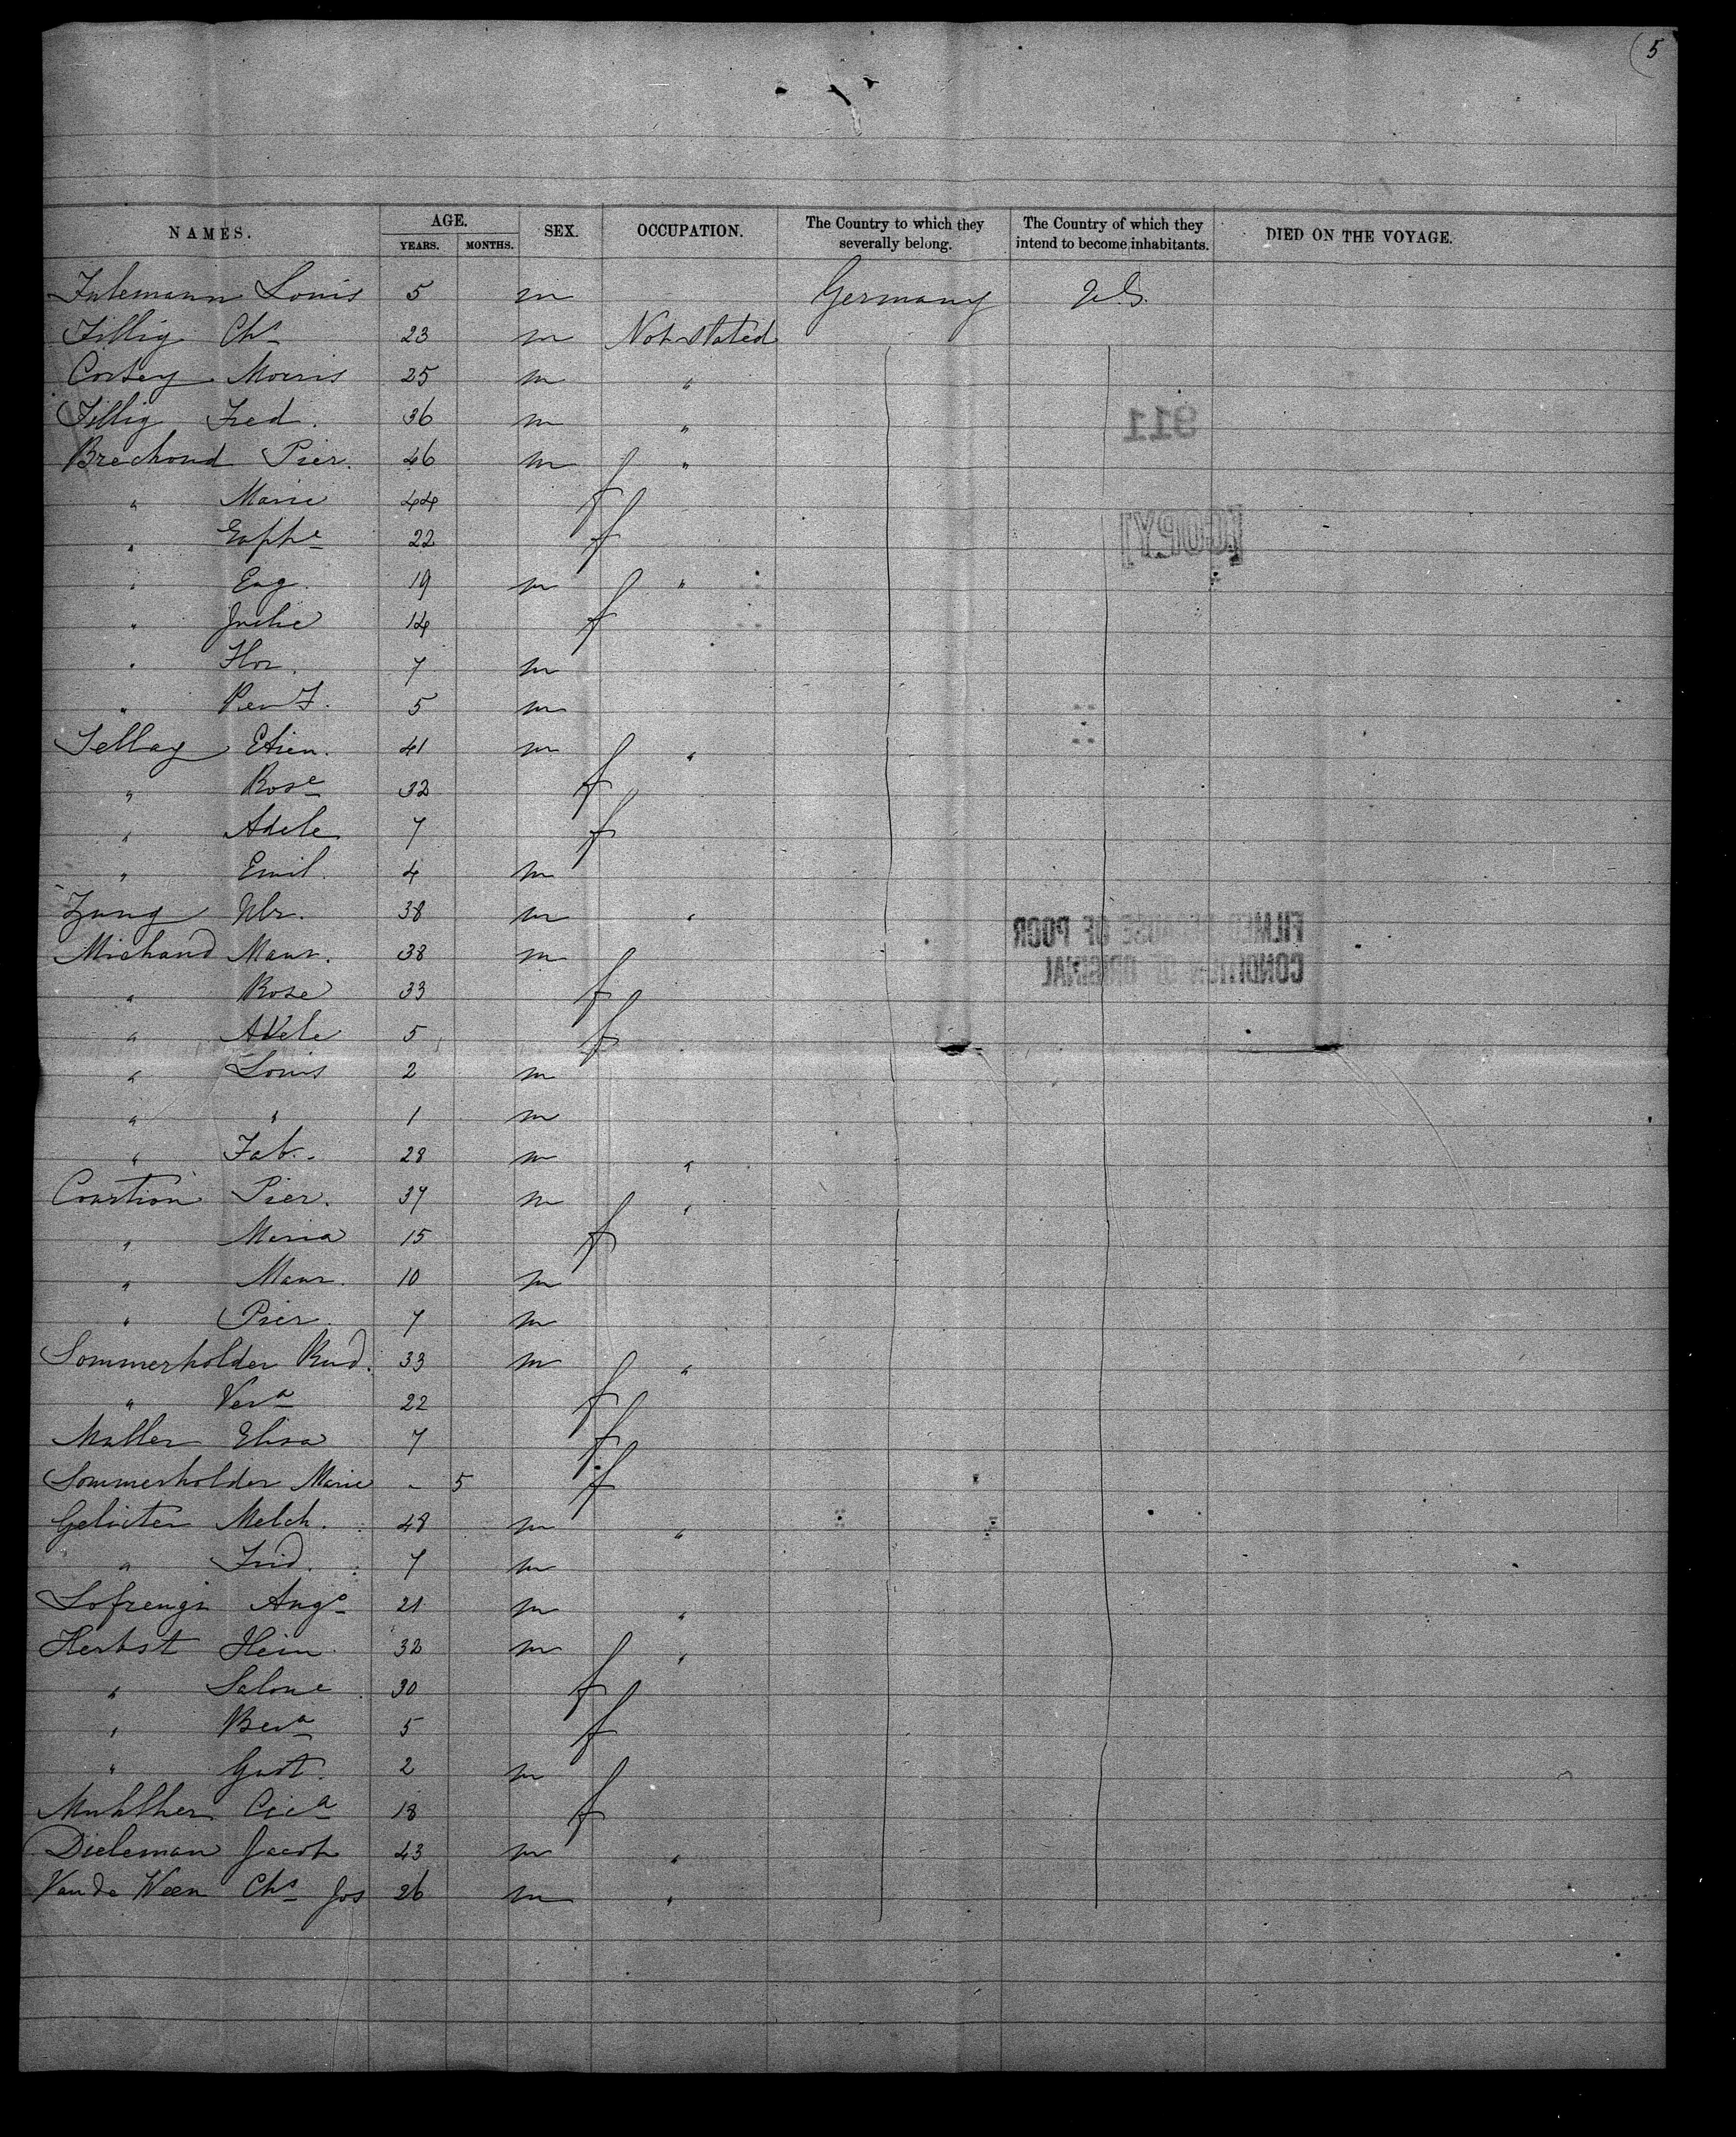 5
NAMES. AGE. YEARS. MONTHS. SEX. OCCUPATION. The Country to which they severally belong. The Country of which they intend to become inhabitants. DIED ON THE VOYAGE.
Louis 5 m Germany U.S.
Fillig Chs 23 m Not stated
Cortey Morris 25 m "
Fillig Fred. 36 m "
Brechoud Pier. 46 m "
" Marie 44 f
" Euphe 22 f
" Eug. 19 m "
" Julie 14 f
" Flor. 7 m
" 5 m
Etien. 41 m "
" Rose 32 f
" Adele 7 f
" Emil. 4 m
Zung Ulr. 38 m "
Michaud Maur. 38 m
" Rose 33 f
" Adele 5 f
" Louis 2 m
" " 1 m
" Fab. 28 m "
Coustion Pier. 37 m "
" Maria 15 f
" Maur. 10 m
" Pier. 7 m
Sommerholder Rud. 33 m "
" Vera 22 f
Muller Elisa 7 f
Sommerholder Marie - 5 f
Melch. 48 m "
" Frid. 7 m
Auge 21 m "
Herbst Hein 32 m "
" Salome 30 f
" Bera 5 f
" Gust. 2 m
18 f
Dieleman Jacob 43 m "
Van de Ween Chs Jos 26 m "
911
[COPY]
FILMED BECAUSE OF POOR
CONDITION OF ORIGINAL